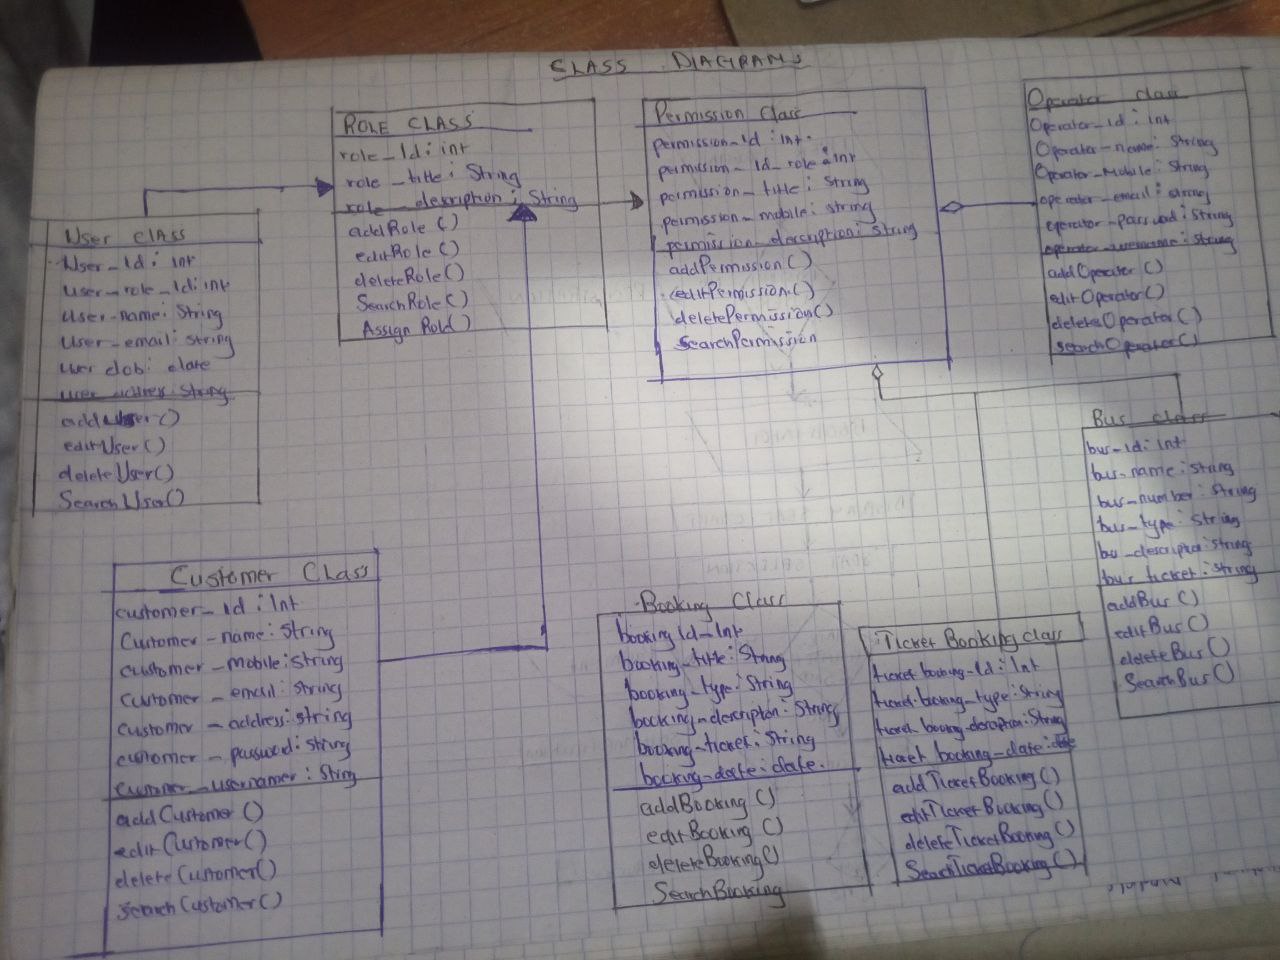 CLASS DIAGRAMS
ROLE CLASS
role_Id: int
role_title: String
role_description: String
addRole()
editRole()
deleteRole()
SearchRole()
Assign Role)
Permission Class
permission_Id: int.
permission_Id_role: int
permission_title: String
permission_mobile: string
permission_description: string
addPermission()
editPermission()
deletePermission()
SearchPermission
Operator class
Operator_Id: int
Operator_name: String
Operator_Mobile: String
operator_email: string
operator_password: String
operator_username: String
addOperator()
editOperator()
deleteOperator()
searchOperator()
User CLASS
User_Id: int
User_role_Id: int
User_name: String
User_email: string
User dob: date
user_address: String
addUser()
editUser()
deleteUser()
SearchUser()
Bus class
bus_Id: Int
bus_name: string
bus_number: string
bus_type: String
bus_description: string
bus_ticket: string
addBus()
editBus()
deleteBus()
SearchBus()
Customer Class
customer_Id: Int
Customer_name: String
customer_mobile: String
Customer_email: string
Customer_address: string
customer_password: string
addCustomer()
editCustomer()
deleteCustomer()
searchCustomer()
Booking Class
booking Id_Int
booking_title: String
booking_type: String
booking_description: String
booking_ticket: String
booking_date: date.
addBooking()
editBooking()
deleteBooking()
SearchBooking
Ticket Booking class
ticket booking_Id: Int
ticket booking_type: String
ticket booking_description: String
ticket booking_date: date
addTicketBooking()
editTicketBooking()
deleteTicketBooking()
SearchTicketBooking()